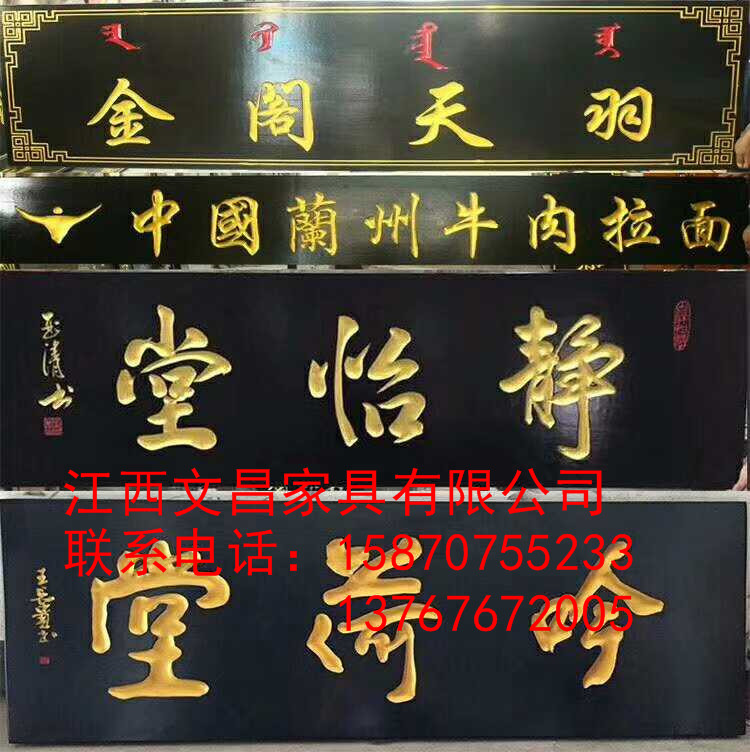 金阁天羽
中國蘭州牛肉拉面
静怡堂
玉清书
江西文昌家具有限公司
联系电话：15870755233
13767672005
吟荷堂